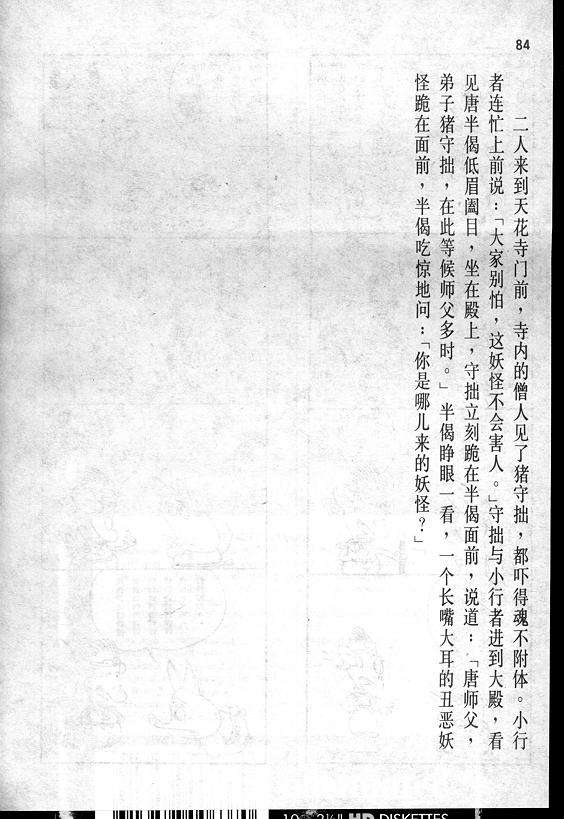 84
二人来到天花寺门前，寺内的僧人见了猪守拙，都吓得魂不附体。小行
者连忙上前说：「大家别怕，这妖怪不会害人。」守拙与小行者进到大殿，看
见唐半偈低眉阖目，坐在殿上，守拙立刻跪在半偈面前，说道：「唐师父，
弟子猪守拙，在此等候师父多时。」半偈睁眼一看，一个长嘴大耳的丑恶妖
怪跪在面前，半偈吃惊地问：「你是哪儿来的妖怪？」
HD DISKETTES